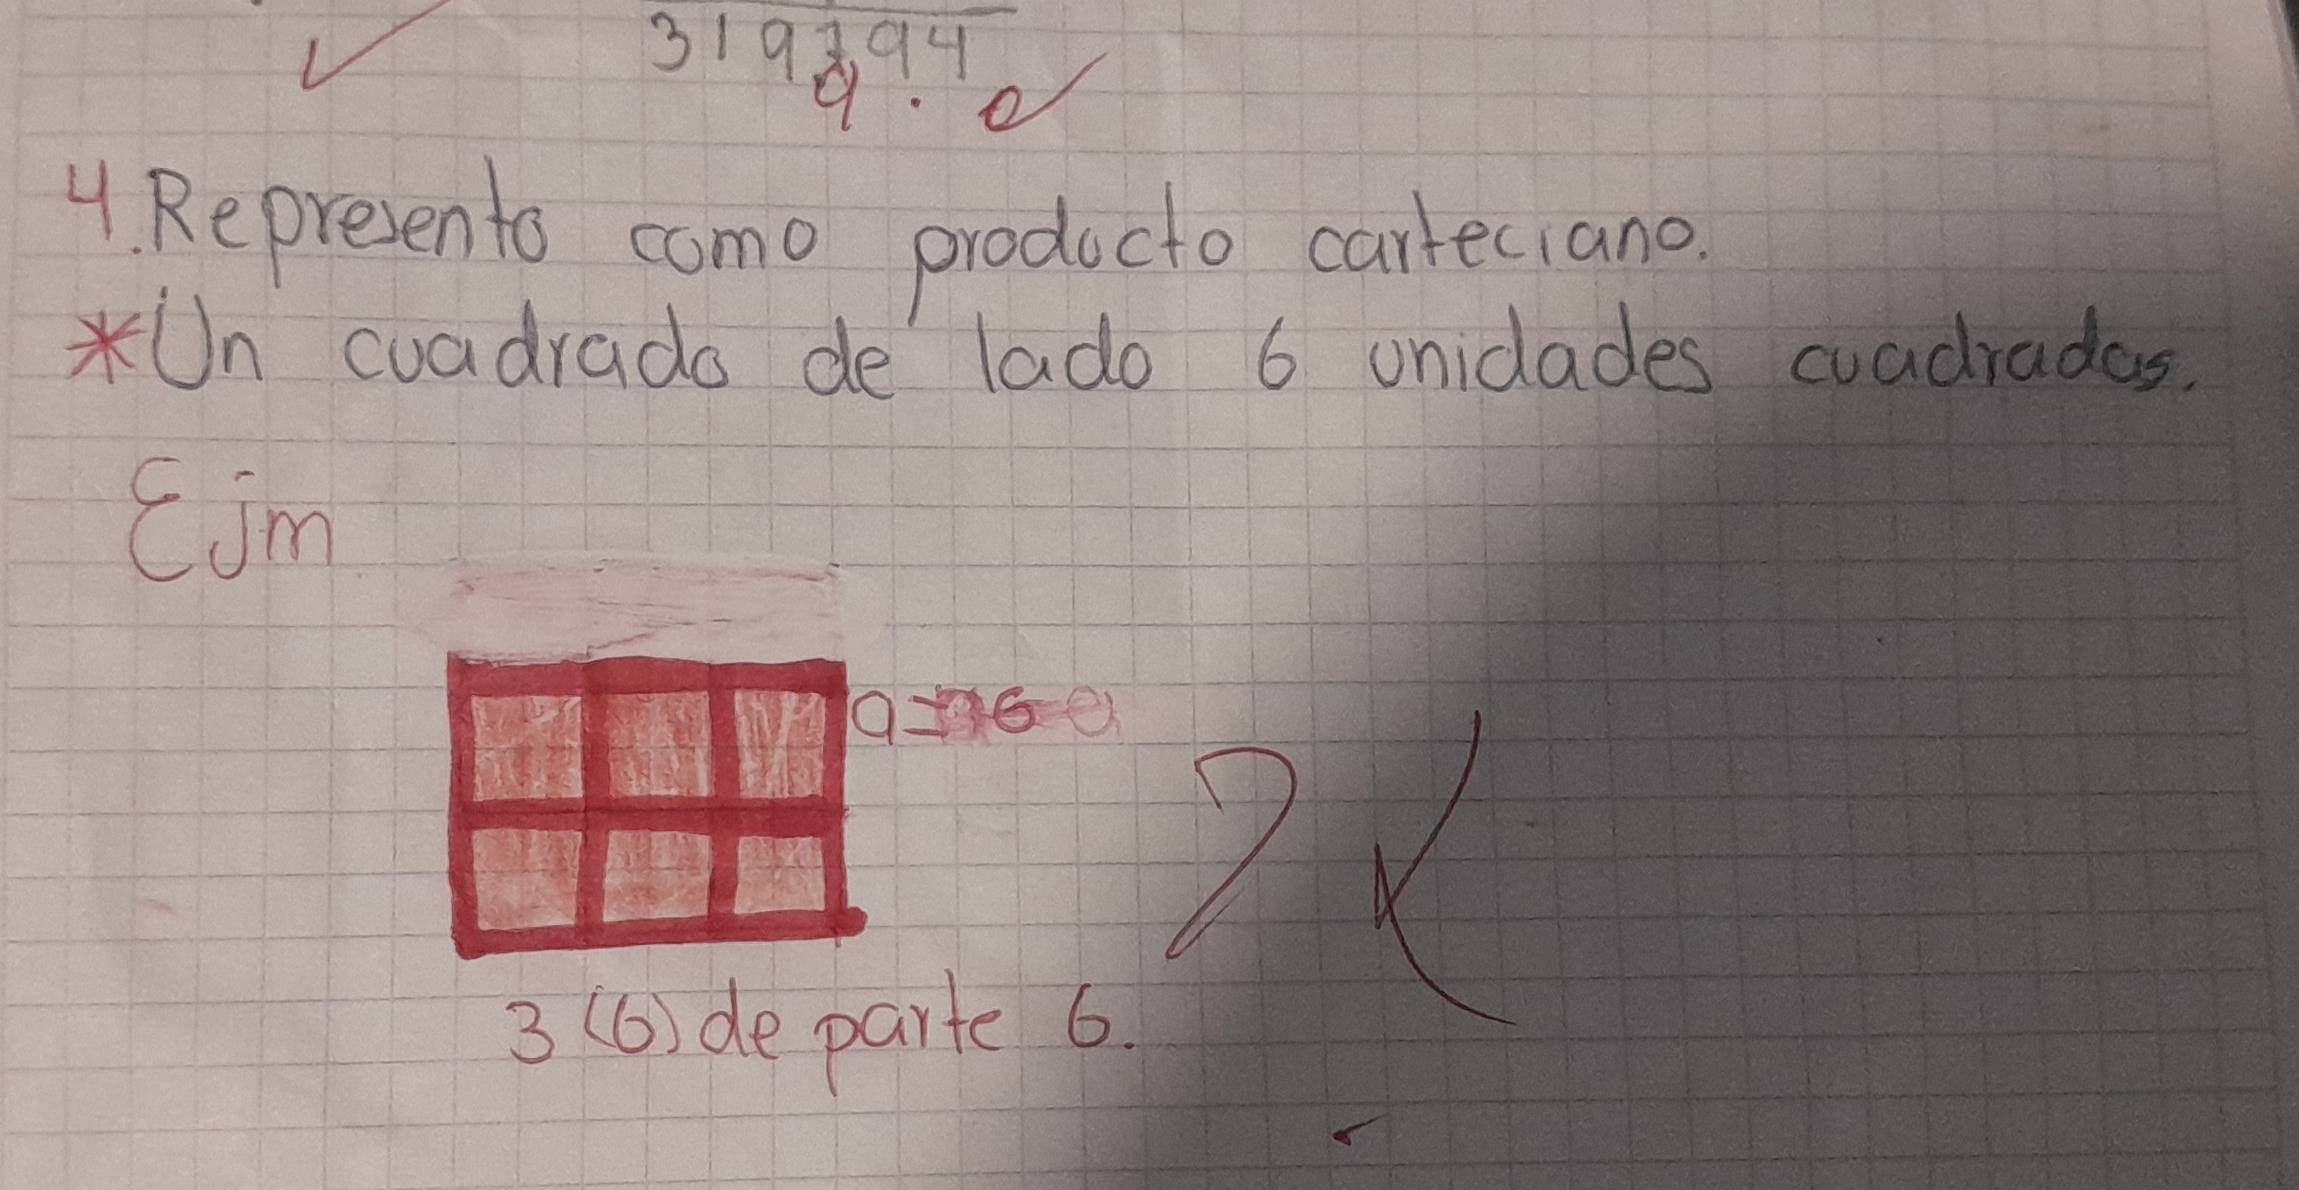 319794
9.
4. Represento como producto carteciano.
*Un cuadrado de lado 6 unidades cuadradas.
Ejm
a= 6
3 (6) de parte 6.